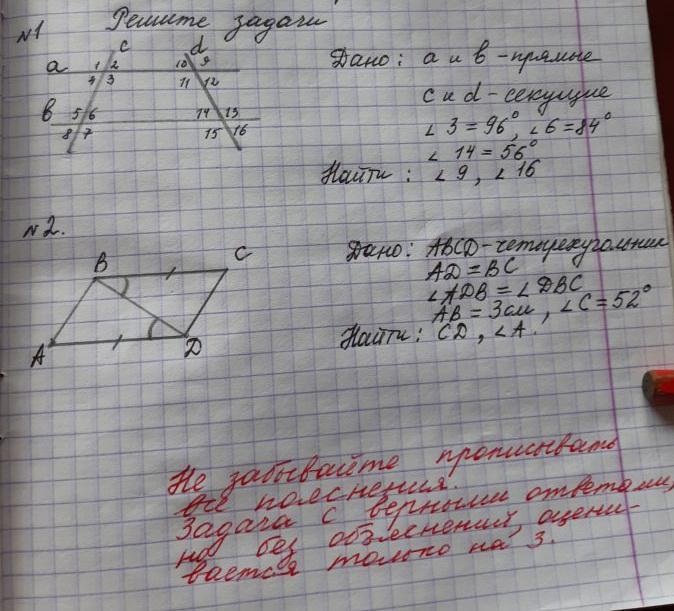 Решите задачи
№1
c d
a 1 2 10 9
4 3 11 12
b 5 6 14 13
8 7 15 16
Дано: a и b - прямые
c и d - секущие
∠3 = 96°, ∠6 = 84°
∠14 = 56°
Найти: ∠9, ∠16
№2.
B C
A D
Дано: ABCD - четырехугольник
AD = BC
∠ADB = ∠DBC
AB = 3см, ∠C = 52°
Найти: CD, ∠A.
Не забывайте прописывать
все пояснения.
Задача с верными ответами,
но без объяснений, оцени-
вается только на 3.